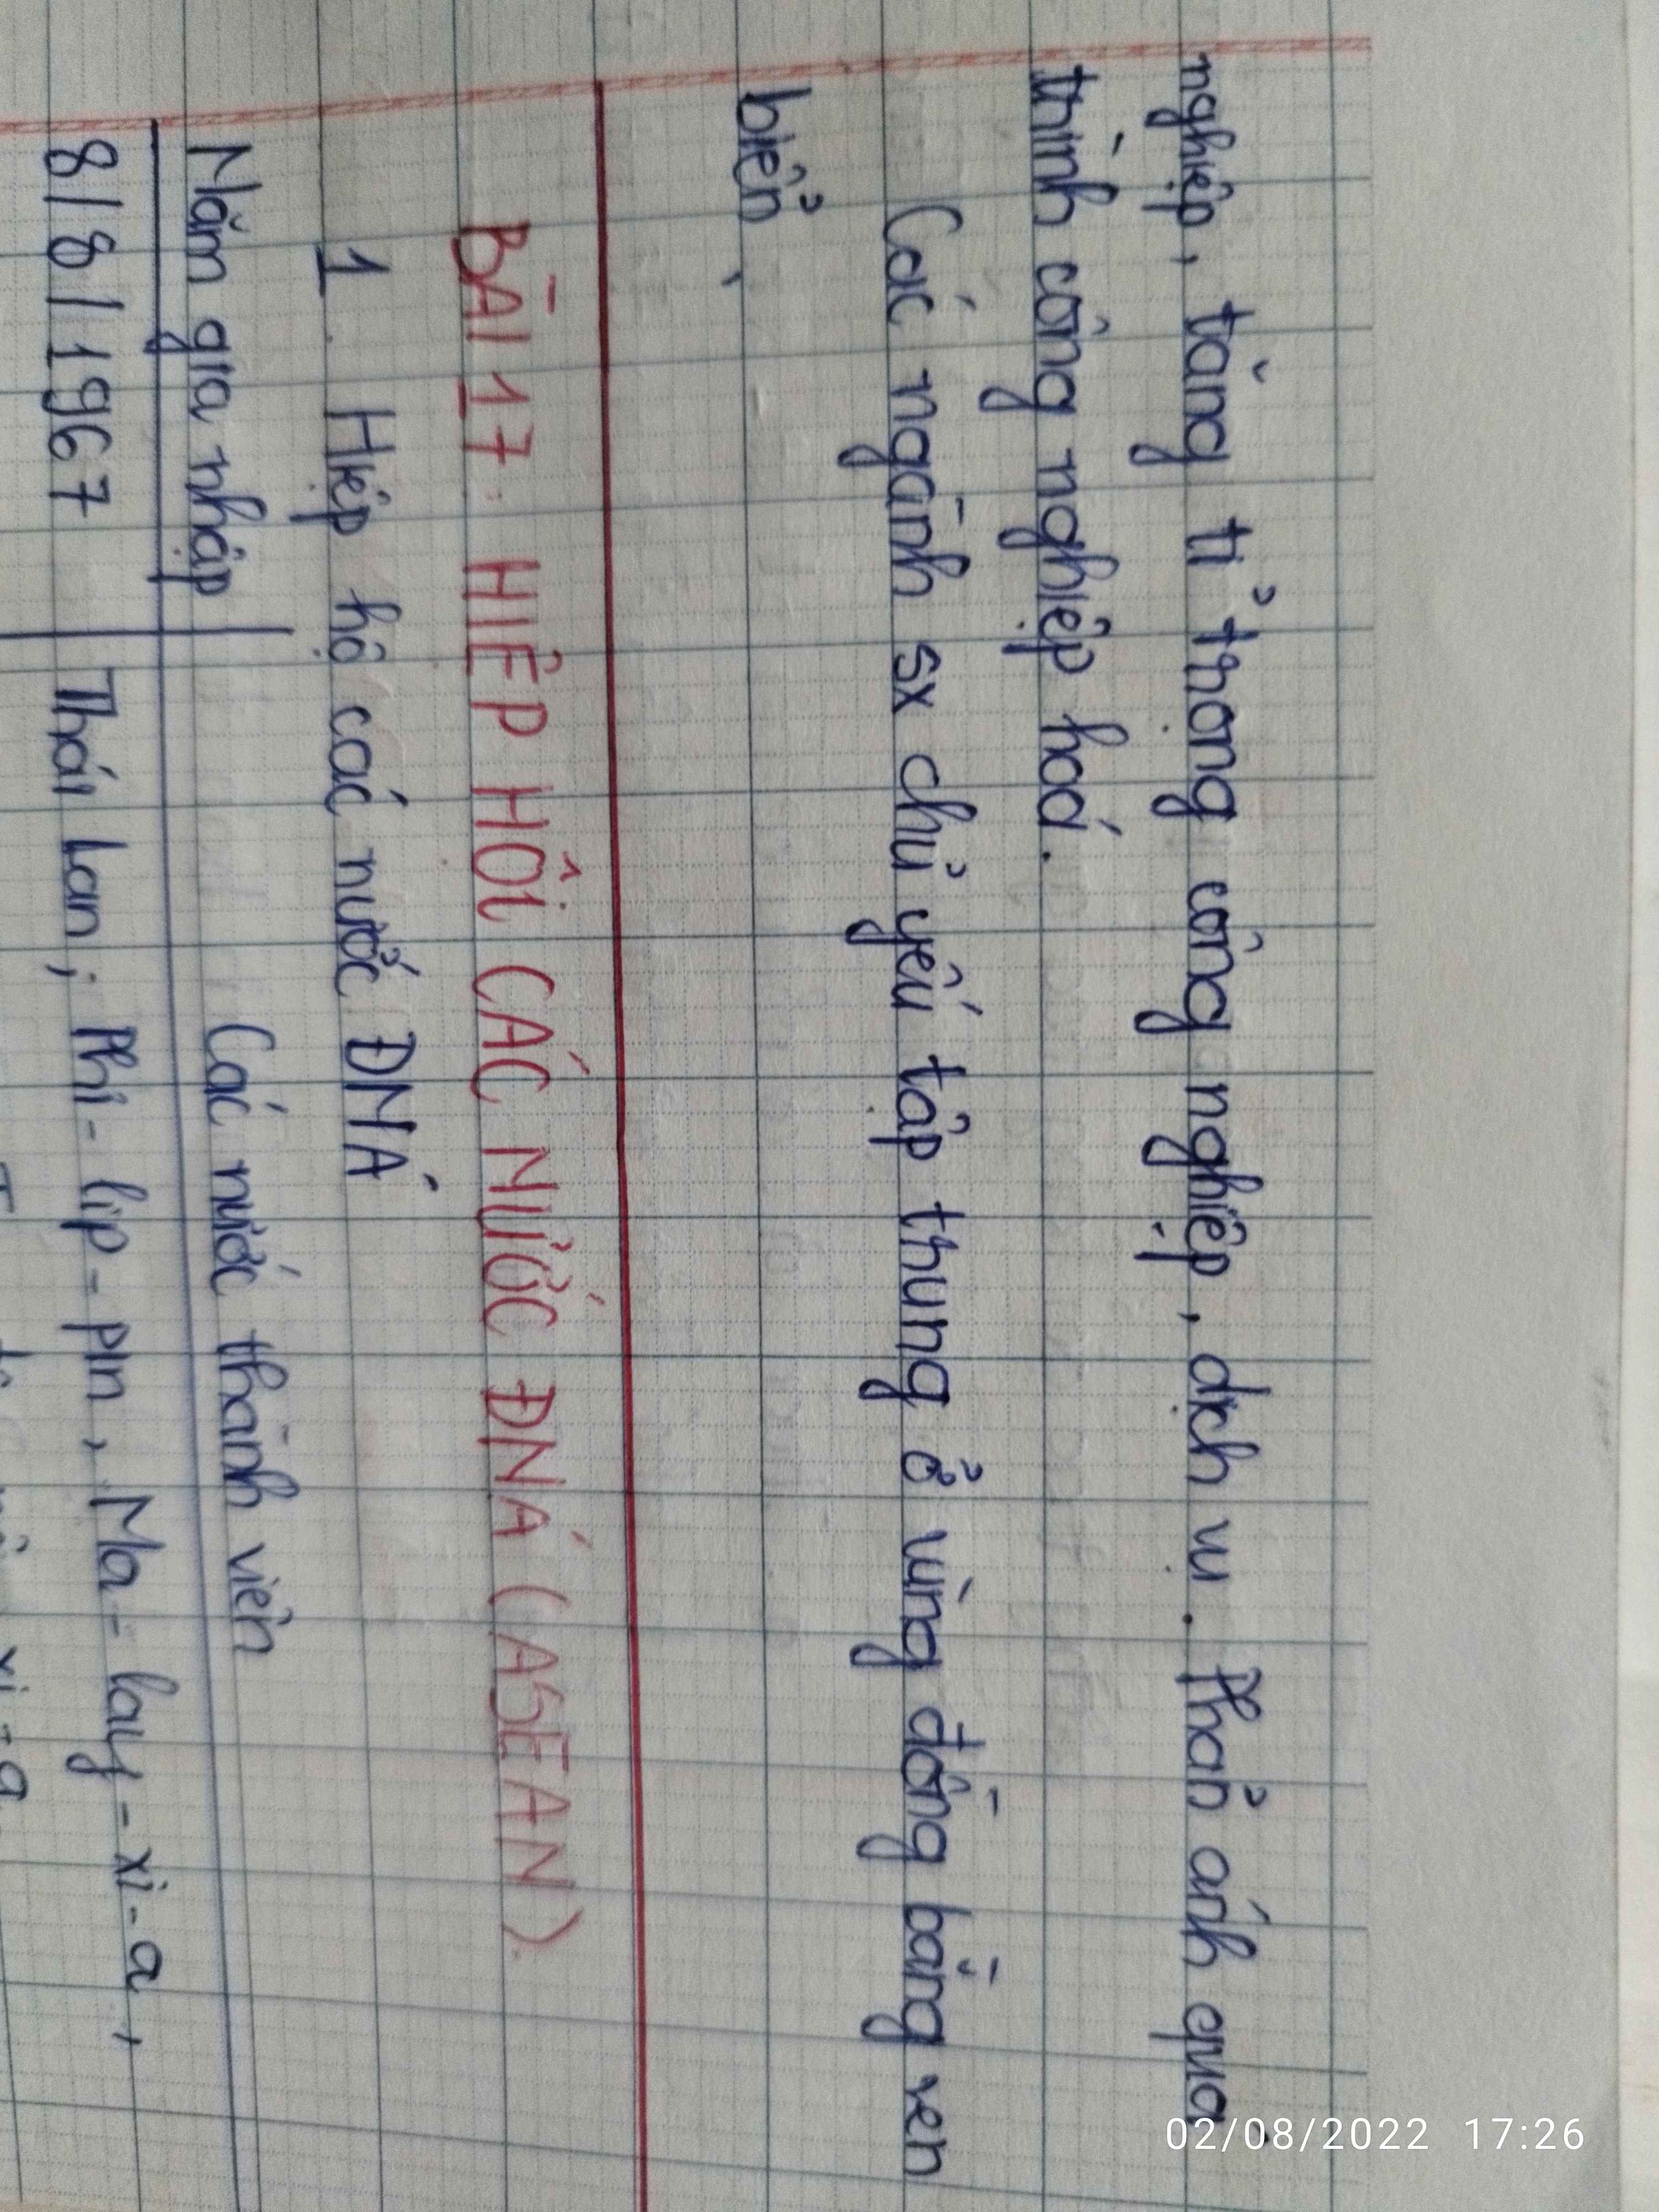 nghiệp, tăng tỉ trọng công nghiệp, dịch vụ. Phản ánh quá
trình công nghiệp hoá.
Các ngành sx chủ yếu tập trung ở vùng đồng bằng ven
biển.
BÀI 17: HIỆP HÔI CÁC NƯỚC ĐNÁ (ASEAN).
1. Hiệp hộ các nước ĐNÁ
Năm gia nhập Các nước thành viên
8/8/1967 Thái Lan, Phi-lip-pin, Ma-lay-xi-a,
02/08/2022 17:26